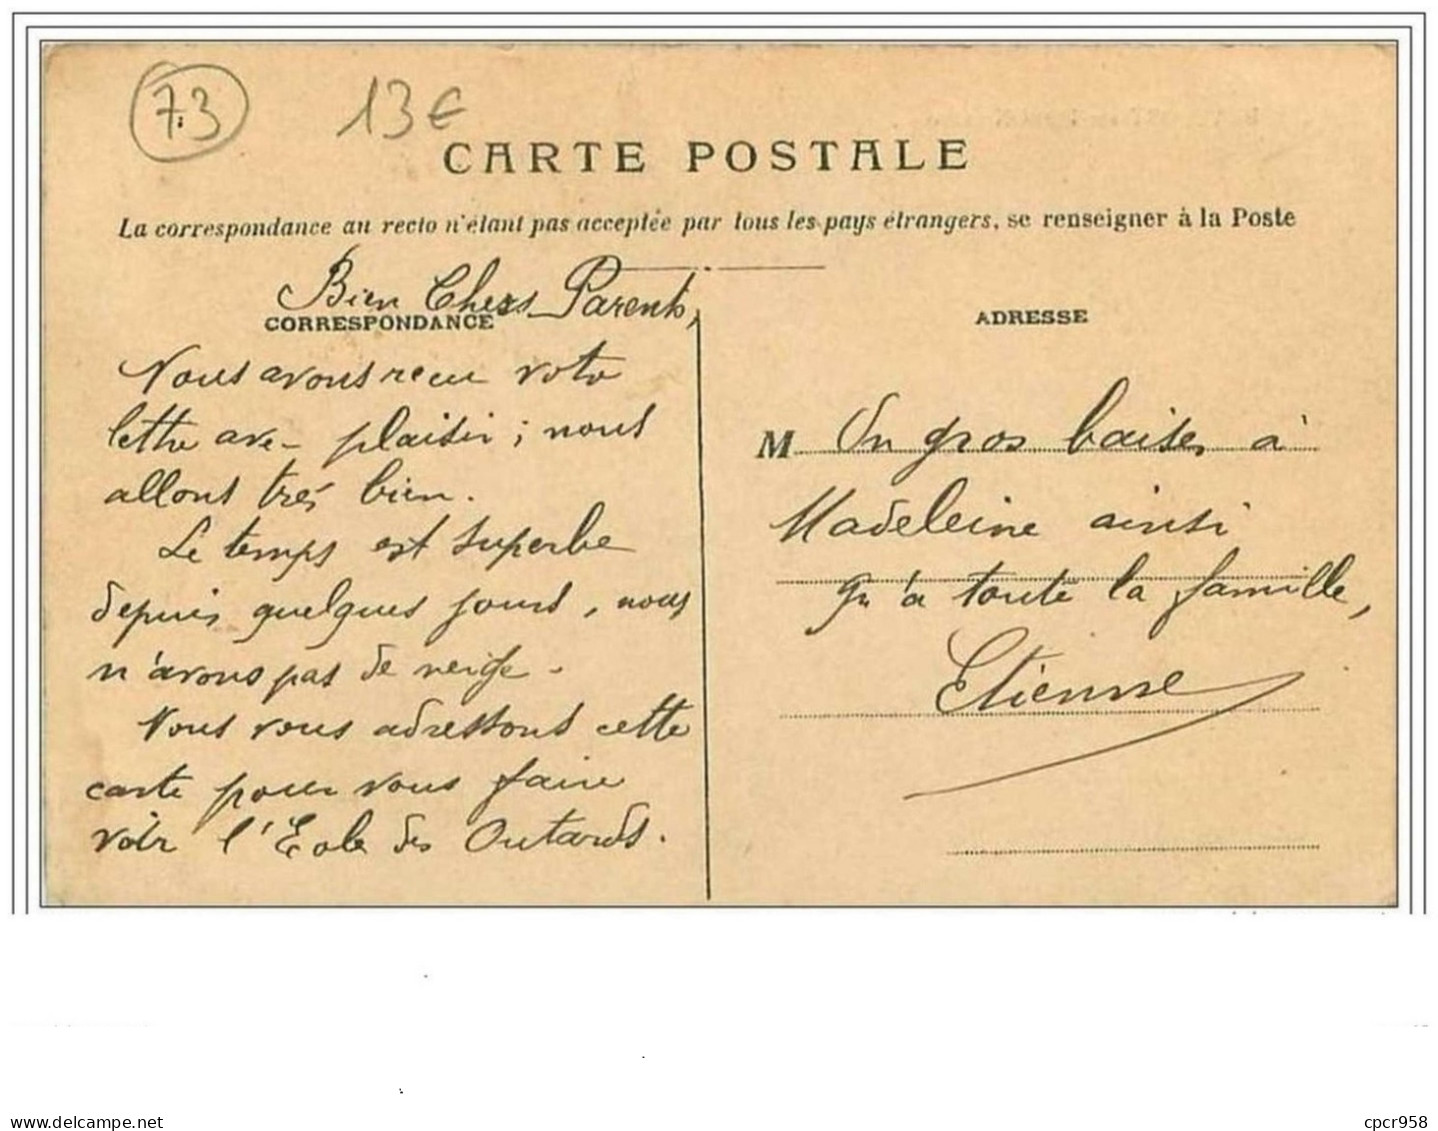 73
13€
CARTE POSTALE
La correspondance au recto n'étant pas acceptée par tous les pays étrangers, se renseigner à la Poste
Bien Chers Parents,
CORRESPONDANCE
Nous avons recu votre
lettre avec plaisir ; nous
allons très bien.
Le temps est superbe
depuis quelques jours, nous
n'avons pas de neige.
Nous vous adressons cette
carte pour vous faire
voir l'Ecole des Outards.
ADRESSE
M Un gros baiser à
Madeleine ainsi
qu'à toute la famille,
Etienne
cpcr958
delcampe.net